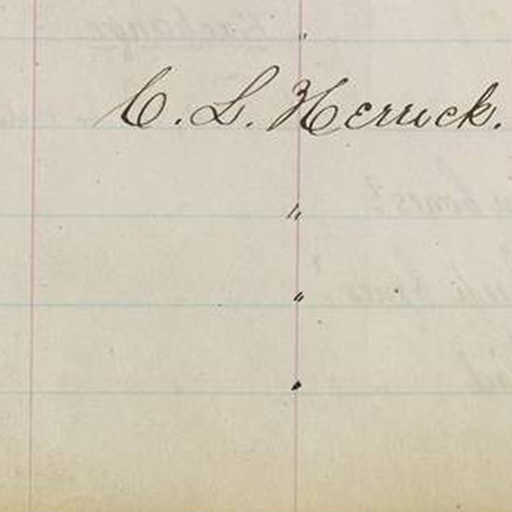 "
C. L. Herrick.
"
"
"